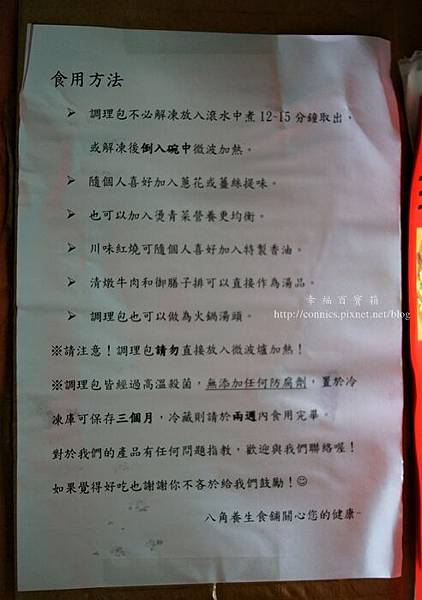 食用方法
➢ 調理包不必解凍放入滾水中煮12~15分鐘取出，
或解凍後倒入碗中微波加熱。
➢ 隨個人喜好加入蔥花或薑絲提味。
➢ 也可以加入燙青菜營養更均衡。
➢ 川味紅燒可隨個人喜好加入特製香油。
➢ 清燉牛肉和御膳子排可以直接作為湯品。
幸福百寶箱
http://connics.pixnet.net/blog
➢ 調理包也可以做為火鍋湯頭。
※請注意！調理包請勿直接放入微波爐加熱！
※調理包皆經過高溫殺菌，無添加任何防腐劑，置於冷
凍庫可保存三個月，冷藏則請於兩週內食用完畢。
對於我們的產品有任何問題指教，歡迎與我們聯絡喔！
如果覺得好吃也謝謝你不吝於給我們鼓勵！☺
八角養生食舖關心您的健康~